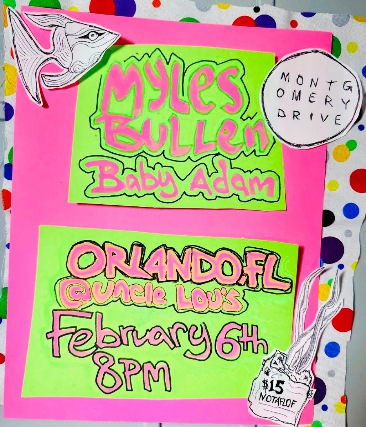 Myles
Bullen
Baby Adam
MONTG
OMERY
DRIVE
ORLANDO, FL
@Uncle Lou's
February 6th
8PM
$15
NOTAFLOF